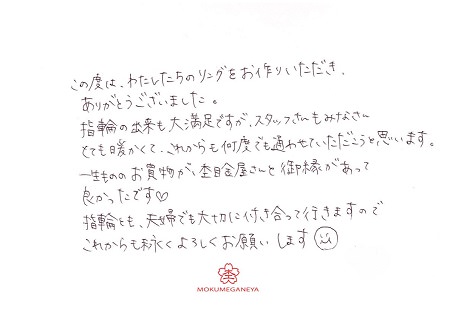 この度は、わたしたちのリングをお作りいただき、
ありがとうございました。
指輪の出来も大満足ですが、スタッフさんもみなさん
とても暖かくて、これからも何度でも通わせていただこうと思います。
一生もののお買物が、杢目金屋さんと御縁があって
良かったです♡
指輪とも、夫婦でも大切に付き合って行きますので
これからも永くよろしくお願いします☺
MOKUMEGANEYA